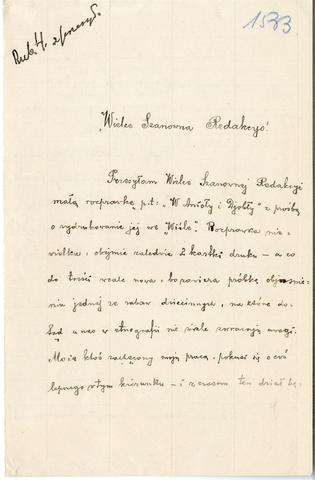 1533.
Wielce Szanowna Redakcyo!
Przesyłam Wielce Szanownej Redakcyi
małą rozprawkę p.t: „W Anioły i Djobły" z prośbą
o wydrukowanie jej we „Wiśle". Rozprawka nie-
wielka, obejmie zaledwie 2 kartki druku – a co
do treści wcale nowa, bo zawiera próbkę objaśnie-
nia jednej ze zabaw dziecinnych, na które do-
tąd u nas w etnografii nie wiele zwracają uwagi.
Może ktoś zachęcony moją pracą, pokusi się o coś
lepszego w tym kierunku – i z czasem ten dział bę-